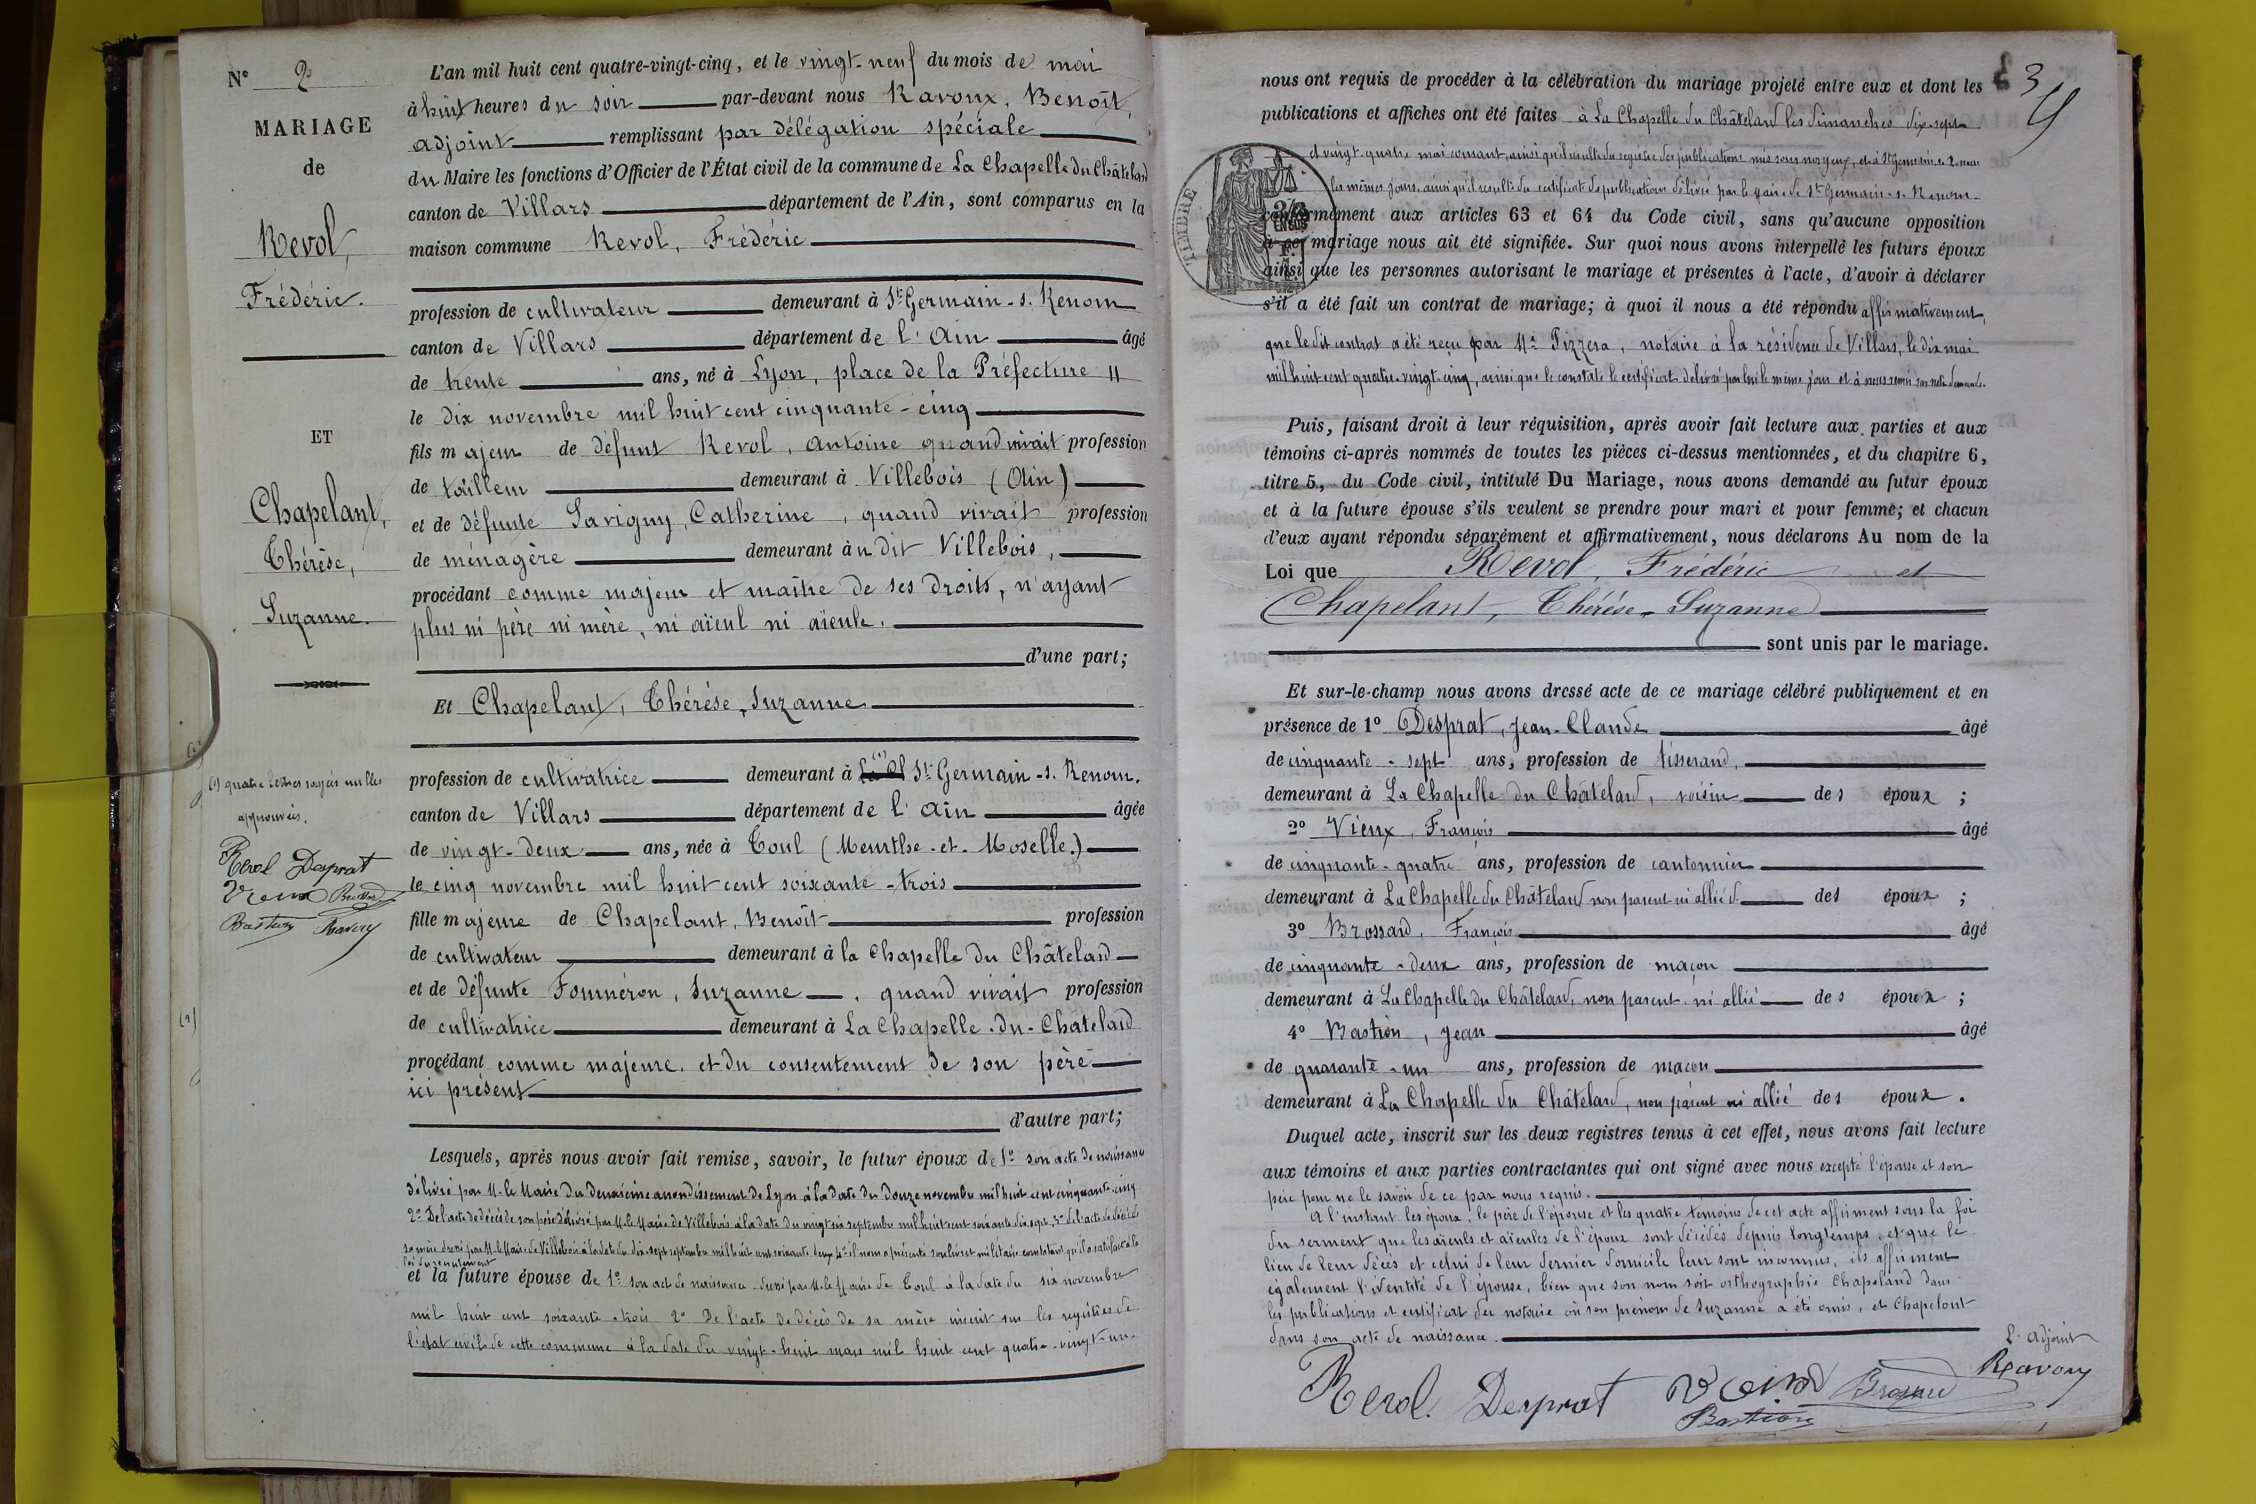 N° 2
MARIAGE
de
Revol,
Frédéric.
ET
Chapelant,
Thérèse,
Suzanne.
(1) quatre lettres rayées nulles
approuvées.
Revol Desprat
Vieux Brossard
Bastion Ravoux
L'an mil huit cent quatre-vingt-cinq, et le vingt-neuf du mois de mai
à huit heures du soir par-devant nous Ravoux, Benoît,
adjoint remplissant par délégation spéciale
du Maire les fonctions d'Officier de l'État civil de la commune de La Chapelle du Châtelard
canton de Villars département de l'Ain, sont comparus en la
maison commune Revol, Frédéric
profession de cultivateur demeurant à St Germain-s. Renom
canton de Villars département de l'Ain âgé
de trente ans, né à Lyon, place de la Préfecture 11
le dix novembre mil huit cent cinquante-cinq
fils majeur de défunt Revol, Antoine quand vivait profession
de tailleur demeurant à Villebois (Ain)
et de défunte Savigny, Catherine, quand vivait profession
de ménagère demeurant àu dit Villebois,
procédant comme majeur et maître de ses droits, n'ayant
plus ni père ni mère, ni aïeul ni aïeule.
d'une part;
Et Chapelant, Thérèse, Suzanne
profession de cultivatrice demeurant à La Ch (1) St Germain-s. Renom.
canton de Villars département de l'Ain âgée
de vingt-deux ans, née à Toul (Meurthe-et-Moselle.)
le cinq novembre mil huit cent soixante-trois
fille majeure de Chapelant, Benoît profession
de cultivateur demeurant à la Chapelle du Châtelard
et de défunte Fournéron, Suzanne, quand vivait profession
de cultivatrice demeurant à La Chapelle-du-Châtelard
procédant comme majeure et du consentement de son père
ici présent
d'autre part;
Lesquels, après nous avoir fait remise, savoir, le futur époux de 1° son acte de naissance
délivré par M. le Maire du deuxième arrondissement de Lyon à la date du douze novembre mil huit cent cinquante-cinq
2° De l'acte de décès de son père délivré par M. le Maire de Villebois à la date du vingt-six septembre mil huit cent soixante-dix-sept, 3° de l'acte de décès de
sa mère dressé par M. le Maire de Villebois à la date du dix-sept septembre mil huit cent soixante-deux 4° il nous a présenté son livret militaire constatant qu'il a satisfait à la
loi du recrutement
et la future épouse de 1° son acte de naissance dressé par M. le Maire de Toul à la date du six novembre
mil huit cent soixante-trois 2° De l'acte de décès de sa mère inscrit sur les registres de
l'état civil de cette commune à la date du vingt-huit mars mil huit cent quatre-vingt-un
3
nous ont requis de procéder à la célébration du mariage projeté entre eux et dont les
publications et affiches ont été faites à La Chapelle du Châtelard les dimanches dix-sept
et vingt-quatre mai courant, ainsi qu'il résulte du registre des publications mis sous nos yeux, et à St Germain-s. Renom
les mêmes jours ainsi qu'il résulte du certificat de publications délivré par le Maire de St Germain-s. Renom
TIMBRE
conformément aux articles 63 et 64 du Code civil, sans qu'aucune opposition
à ce mariage nous ait été signifiée. Sur quoi nous avons interpellé les futurs époux
ainsi que les personnes autorisant le mariage et présentes à l'acte, d'avoir à déclarer
s'il a été fait un contrat de mariage; à quoi il nous a été répondu affirmativement,
que le dit contrat a été reçu par Me Pizzera, notaire à la résidence de Villars, le dix mai
mil huit cent quatre-vingt-cinq, ainsi que le constate le certificat délivré par lui le même jour et à nous remis sur notre demande.
Puis, faisant droit à leur réquisition, après avoir fait lecture aux parties et aux
témoins ci-après nommés de toutes les pièces ci-dessus mentionnées, et du chapitre 6,
titre 5, du Code civil, intitulé Du Mariage, nous avons demandé au futur époux
et à la future épouse s'ils veulent se prendre pour mari et pour femme; et chacun
d'eux ayant répondu séparément et affirmativement, nous déclarons Au nom de la
Loi que Revol, Frédéric et
Chapelant, Thérèse, Suzanne
sont unis par le mariage.
Et sur-le-champ nous avons dressé acte de ce mariage célébré publiquement et en
présence de 1° Desprat, Jean-Claude âgé
de cinquante-sept ans, profession de tisserand,
demeurant à La Chapelle du Châtelard, voisin des époux ;
2° Vieux, François âgé
de cinquante-quatre ans, profession de cantonnier
demeurant à La Chapelle du Châtelard non parent ni allié d des époux ;
3° Brossard, François âgé
de cinquante-deux ans, profession de maçon
demeurant à La Chapelle du Châtelard, non parent ni allié des époux ;
4° Bastion, Jean âgé
de quarante-un ans, profession de maçon
demeurant à La Chapelle du Châtelard, non parent ni allié des époux.
Duquel acte, inscrit sur les deux registres tenus à cet effet, nous avons fait lecture
aux témoins et aux parties contractantes qui ont signé avec nous excepté l'épouse et son
père pour ne le savoir de ce par nous requis.
A l'instant les époux, le père de l'épouse et les quatre témoins de cet acte affirment sous la foi
du serment que les aïeuls et aïeules de l'époux sont décédés depuis longtemps, et que le
lieu de leur décès et celui de leur dernier domicile leur sont inconnus, ils affirment
également l'identité de l'épouse, bien que son nom soit orthographié Chapeland dans
les publications et certificat du notaire où son prénom de Suzanne a été omis, et Chapelont
dans son acte de naissance.
L'adjoint
Ravoux
Revol. Desprat Vieux Brossard
Bastion